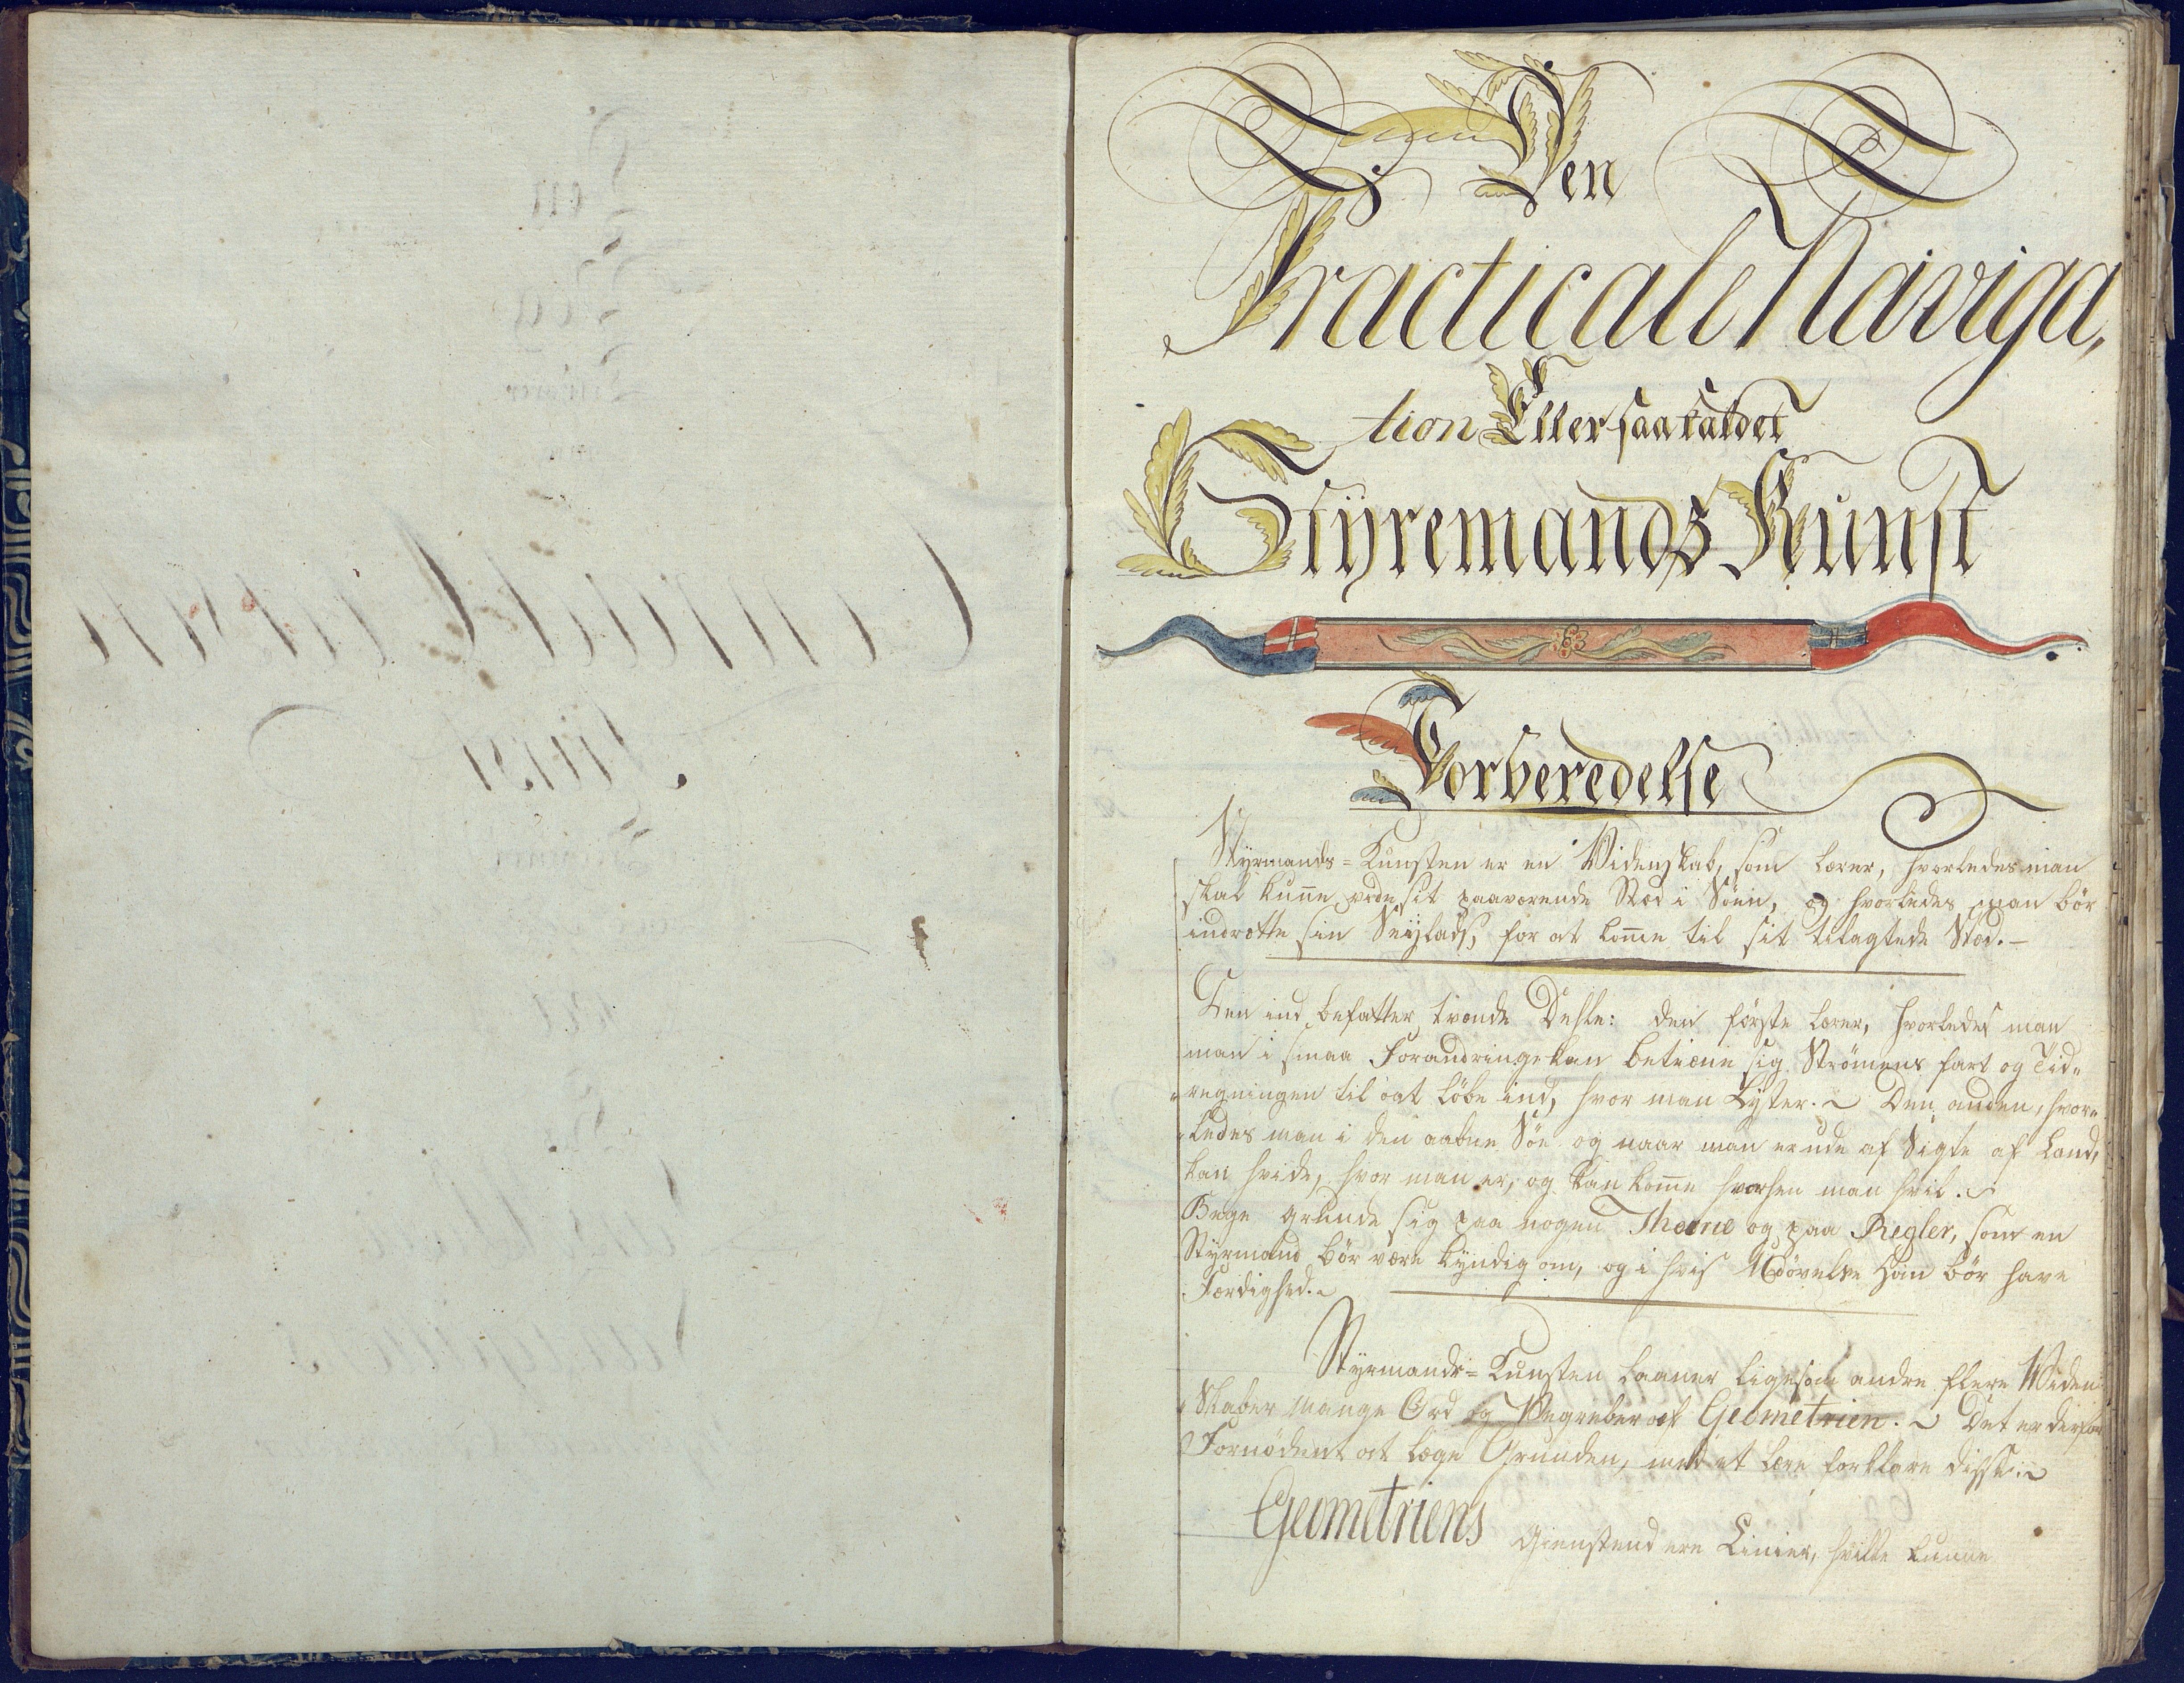 Den
Practicale Naviga,
tion Eller saa kaldet
Styremands Kunst
Forberedelse
Styrmands=Kunsten er en Videnskab, som lærer, hvorledes man
skal kunne vide sit paaværende Stæd i Søen, og hvorledes man bör
indrætte sin Seylads, for at komme til sit tilagtede Stæd.—
Den ind befatter tvende Dehle: den förste lærer, hvorledes man
man i smaa Forandringe kan betiene sig Strömens fart og Tid„
„regningen til at löbe ind, hvor man Lyster. Den anden, hvor„
„ledes man i den aabne Söe og naar man er ude af Sigte af Land,
kan hvide, hvor man er, og kan komme hvorhen man hvil.
Bege grunde sig paa nogen Theorie og paa Regler, som en
Styrmand bör være kyndig om, og i hvis Udövelse Han bör have
Færdighed.
Styrmands=Kunsten laaner ligesom andre flere Viden
„Skaber mange Ord og Begreber af Geometrien. Det er derfor
Fornödent at læge Grunden, med at lære forklare disse.
Geometriens Gienstand ere Linier, hvilke kunne